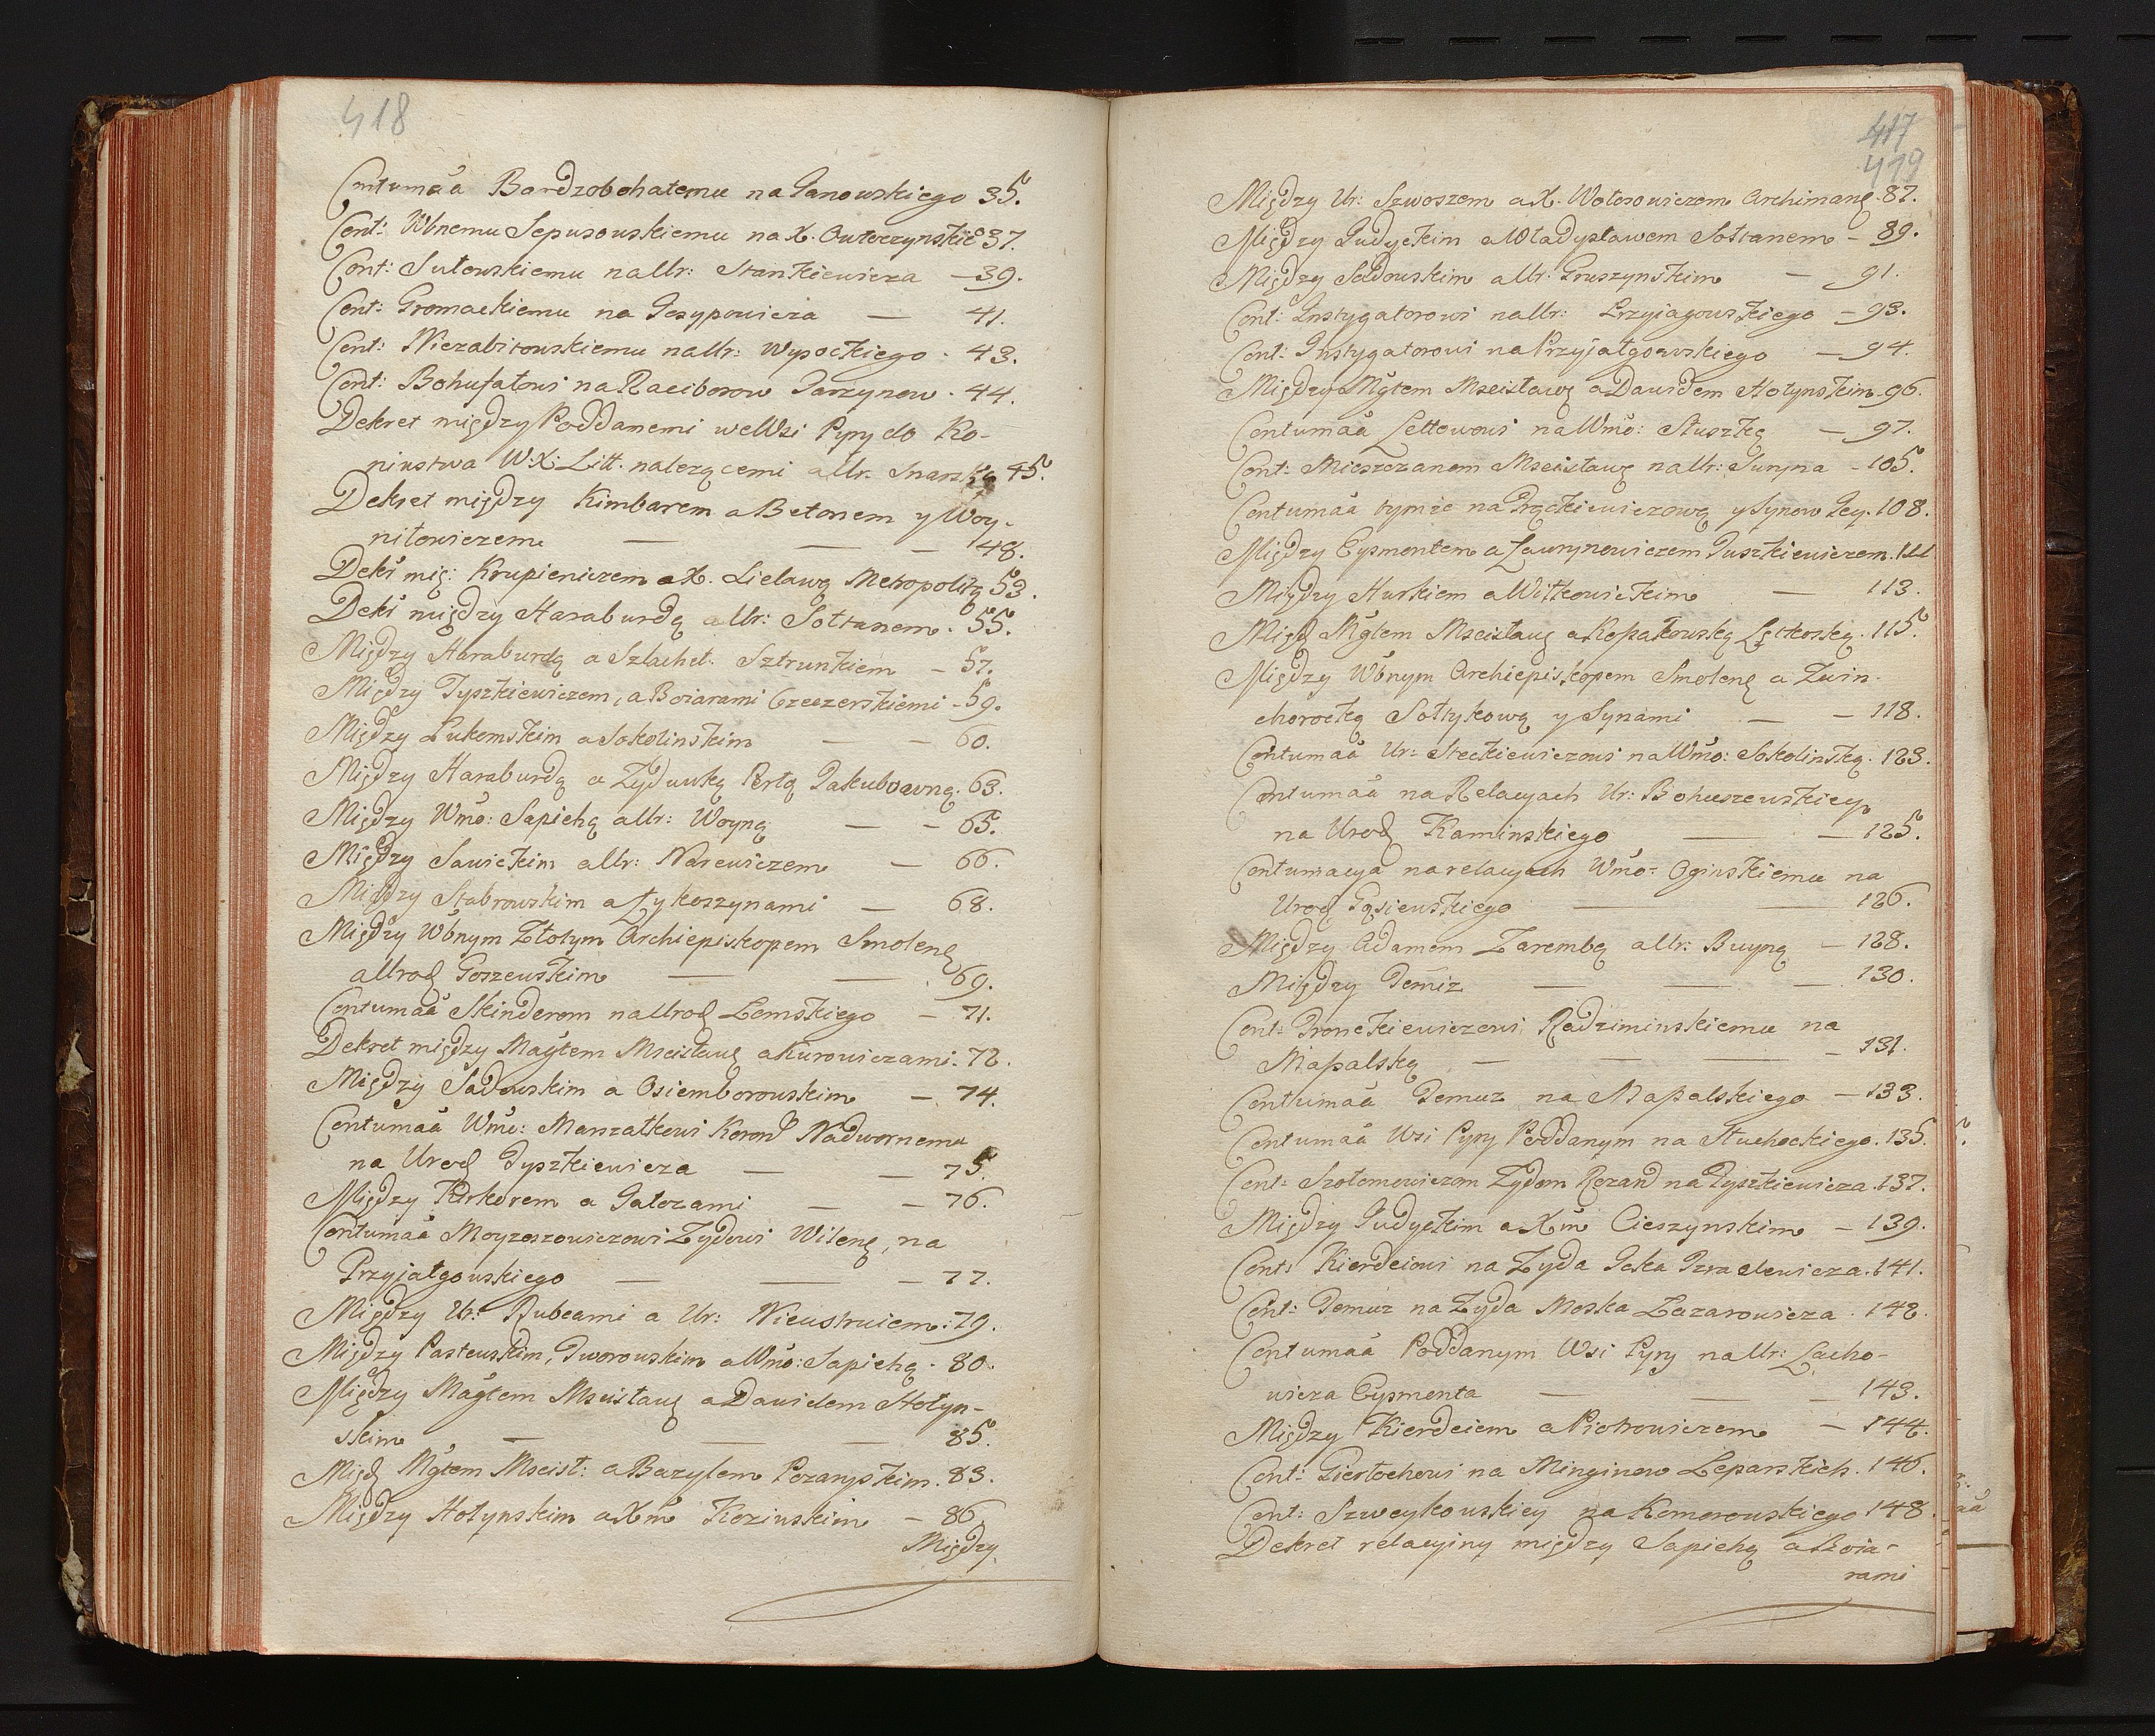 418
Contumaa Bardzobohatemu na Janowskiego 35.
Cont: Wbnemu Sepusowskiemu na X. Owłoczynskie° 37.
Cont: Sulowskiemu na Ur: Stankiewicza — 39.
Cont: Gromackiemu na Jesypowicza — 41.
Cont: Niezabitowskiemu na Ur: Wysockiego . 43.
Cont: Bohufałowi na Raciborow Jarzynow . 44.
Dekret między Poddanemi we Wsi Pyry do Ko-
niustwa W: X: Litt. należącemi a Ur. Snarską 45.
Dekret między Kimbarem a Betonem y Woy-
niłowiczem — — — 48.
Dekr mię: Krupieniczem a X. Lielawą Metropolitą 53.
Dekr między Haraburdą a Ur: Sołtanem . 55.
Między Haraburdą a Szlachet: Sztrunkiem — 57.
Między Tyszkiewiczem, a Boiarami Czeczerskiemi - 59.
Między Łukomskim a Sokolinskim — — 60.
Między Haraburdą a Zyduwką Perlą Jakubowną . 63.
Między Wmo: Sapiehą a Ur: Woyną — — 65.
Między Sawickim a Ur: Narewiczem — 66.
Między Stabrowskim a Łykoszynami — 68.
Między Wbnym Złotym Archiepiskopem Smolenę
a Urod Goszewskim — — 69.
Contumaa Skinderom na Urod Lemskiego — 71.
Dekret między Magłem Mscisławę a Kurowiczami . 72.
Między Sadowskim a Osiemborowskim — 74.
Contumaa Wmo: Marszałkowi Koron Nadwornemu
na Urod Tyszkiewicza — — 75.
Między Kirkorem a Gatozami — — 76.
Contumaa Moyzeszowiczowi Zydowi Wilenę, na
Przyjałgowskiego — — — 77.
Między Ur: Rubcami a Ur: Nieustruiem : 79.
Między Pastewskim, Dworowskim a Wmo: Sapiehą . 80.
Między Magłem Mscisławę a Dawidem Hołyn-
skim — — — 85.
Międ Mgłem Mscisł: a Bazylem Pozaryskim . 83.
Między Hołynskim a Xm Kozinskim — 86.
Między
417
419
Między Ur: Szwoszem a X. Wołosowiczem Archimanę . 87.
Między Judyckim a Władysławem Sołtanem — 89.
Między Sadowskim a Ur: Gruszynskim — 91.
Cont: Instygatorowi na Ur: Przyjagowskiego — 93.
Cont: Instygatorowi na Przyjałgowskiego — 94.
Między Mgłem Mscisławę a Dawidem Hołynskim . 96.
Contumaa Lettowowi na Wmo: Słuszkę — 97.
Cont: Mieszczanom Mscisławę na Ur: Suryna — 105.
Contumaa tymże na Prąckiewiczową y Synow Jey . 108.
Między Eysmontem a Ławrynowiczem Juszkiewiczem . 111
Między Hurkiem a Witkowickim — 113.
Międ Mgłem Mscisławę a Kopatowską Łętkoską . 115.
Między Wbnym Archiepiskopem Smolenę a Zwin-
chorocką Sołtykową y Synami — — 118.
Contumaa Ur: Steckiewiczowi na Wmo: Sokolinską . 123.
Contumaa na Relacyach Ur: Bohuszewskiey
na Urod Kaminskiego — — 125.
Contumacya na relacyach Wmo: Oginskiemu na
Urod Gąsiewskiego — — 126.
Między Adamem Zarembą a Ur: Buyną — 128.
Między Temiz — — — 130.
Cont: Pronckiewiczowi Radziminskiemu na
Mapalską — — — 131.
Contumaa Temuz na Mapalskiego — 133.
Contumaa Wsi Pyry Poddanym na Słuchockiego . 135.
Cont: Szołomowiczom Zydom Rożand na Tyszkiewicza . 137.
Między Judyckim a Xm Cieszynskim — 139.
Cont: Kierdeiowi na Zyda Joska Izraelewicza . 141.
Cont: Temuz na Zyda Moska Lazarowicza . 142.
Contumaa Poddanym Wsi Pyry na Ur: Lacho-
wicza Eysmonta — — — 143.
Między Kierdeiem a Piotrowiczem — 144.
Cont: Giertochowi na Minginow Leparskich . 146.
Cont: Szweykowskiey na Komorowskiego 148.
Dekret relacyiny między Sapiehą a Boia-
rami